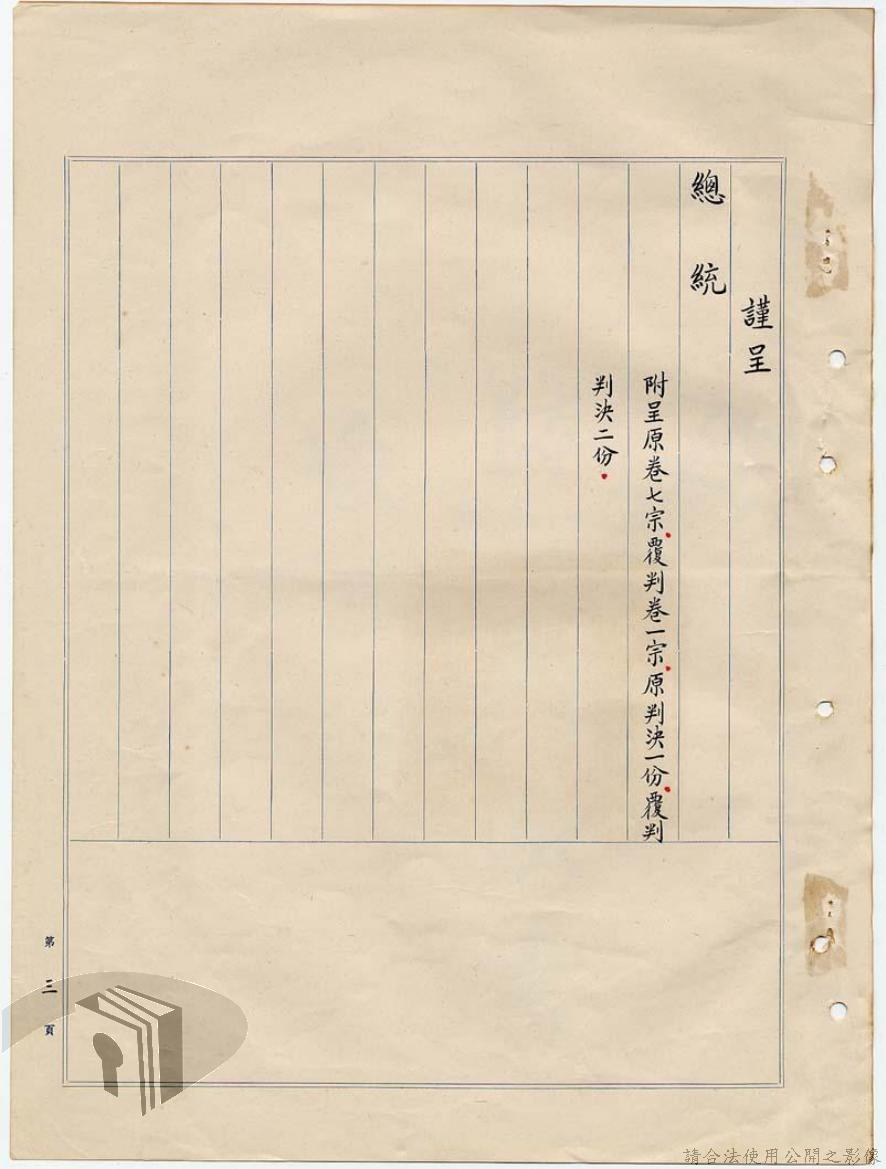 謹呈
總統
附呈原卷七宗.覆判卷一宗.原判決一份.覆判
判決二份.
第三頁
請合法使用公開之影像